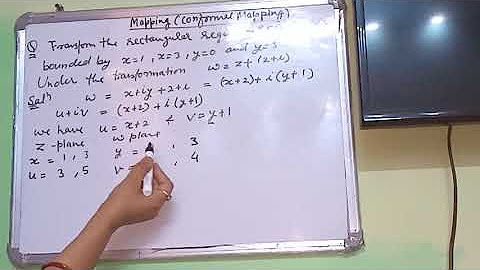 Mapping (Conformal Mapping)
Q Transform the rectangular regi
bounded by x=1, x=3, y=0 and y=3
Under the transformation w=z+(2+i)
Solⁿ w = x+iy+2+i = (x+2)+i(y+1)
u+iv = (x+2)+i(y+1)
we have u = x+2 & v=y+1
z-plane w plane
x = 1, 3 y = , 3
u = 3, 5 v = , 4